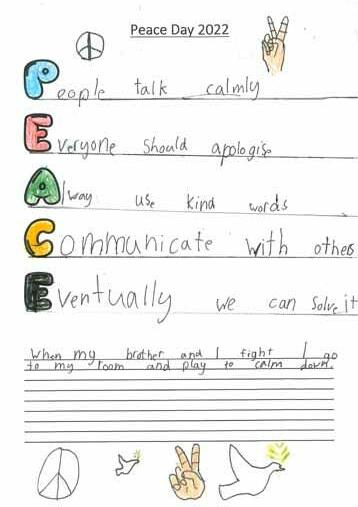 Peace Day 2022
People talk calmly
Everyone should apologise
Alway use kind words
Communicate with others
Eventually we can solve it
When my brother and I fight I go
to my room and play to calm down.